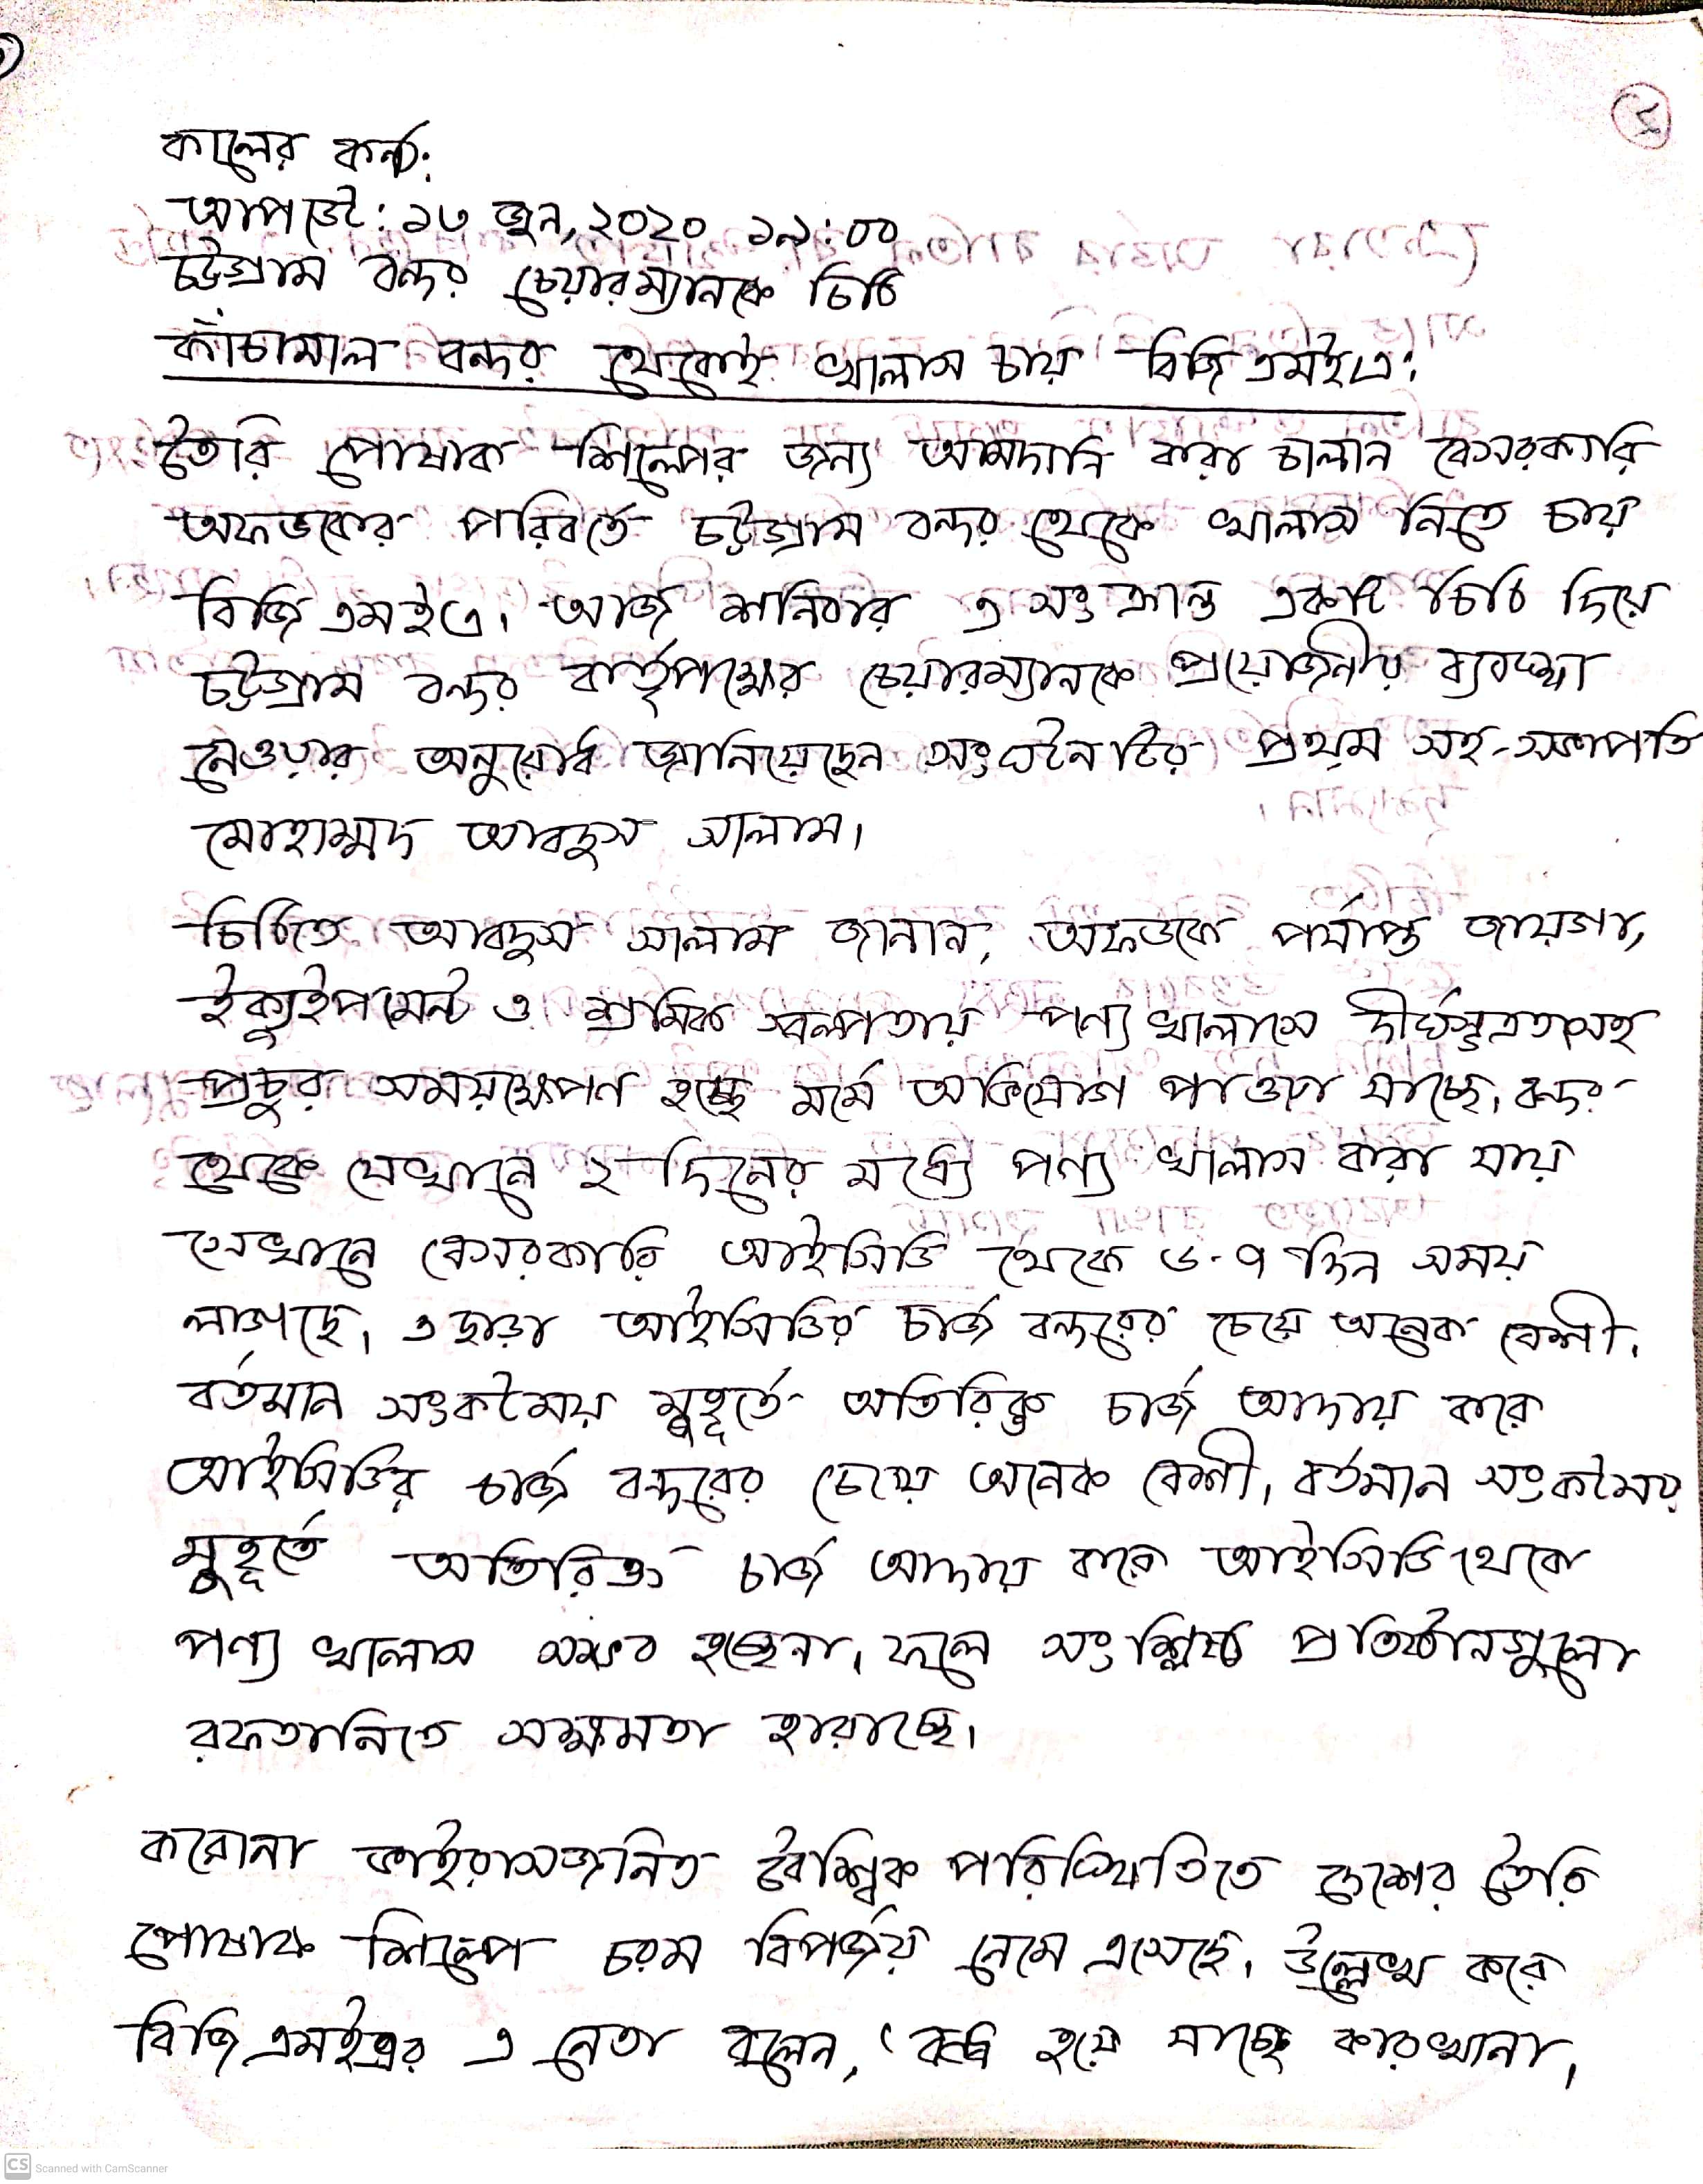 ৫
কালের কন্ঠ:
আপডেট: ১৩ জুন, ২০২০ ১৯:০০
চট্টগ্রাম বন্দর চেয়ারম্যানকে চিঠি
কাঁচামাল বন্দর থেকেই খালাস চায় বিজিএমইএ:
তৈরি পোষাক শিল্পের জন্য আমদানি করা চালান বেসরকারি
অফডকের পরিবর্তে চট্টগ্রাম বন্দর থেকে খালাস নিতে চায়
বিজিএমইএ। আজ শনিবার এ সংক্রান্ত একটি চিঠি দিয়ে
চট্টগ্রাম বন্দর কর্তৃপক্ষের চেয়ারম্যানকে প্রয়োজনীয় ব্যবস্থা
নেওয়ার অনুরোধ জানিয়েছেন সংগঠনটির প্রথম সহ-সভাপতি
মোহাম্মদ আবদুস সালাম।
চিঠিতে আবদুস সালাম জানান, অফডকে পর্যাপ্ত জায়গা,
ইক্যুইপমেন্ট ও শ্রমিক স্বল্পতায় পণ্য খালাসে দীর্ঘসূত্রতাসহ
প্রচুর সময়ক্ষেপণ হচ্ছে মর্মে অভিযোগ পাওয়া যাচ্ছে। বন্দর
থেকে যেখানে ২ দিনের মধ্যে পণ্য খালাস করা যায়
সেখানে বেসরকারি আইসিডি থেকে ৬-৭ দিন সময়
লাগছে। এছাড়া আইসিডির চার্জ বন্দরের চেয়ে অনেক বেশী।
বর্তমান সংকটময় মুহূর্তে অতিরিক্ত চার্জ আদায় করে
আইসিডির চার্জ বন্দরের চেয়ে অনেক বেশী। বর্তমান সংকটময়
মুহূর্তে অতিরিক্ত চার্জ আদায় করে আইসিডি থেকে
পণ্য খালাস সম্ভব হচ্ছেনা। ফলে সংশ্লিষ্ট প্রতিষ্ঠানগুলো
রফতানিতে সক্ষমতা হারাচ্ছে।
করোনা ভাইরাসজনিত বৈশ্বিক পরিস্থিতিতে দেশের তৈরি
পোষাক শিল্পে চরম বিপর্জয় নেমে এসেছে। উল্লেখ করে
বিজিএমইএর এ নেতা বলেন, 'বন্ধ হয়ে যাচ্ছে কারখানা।
CS Scanned with CamScanner